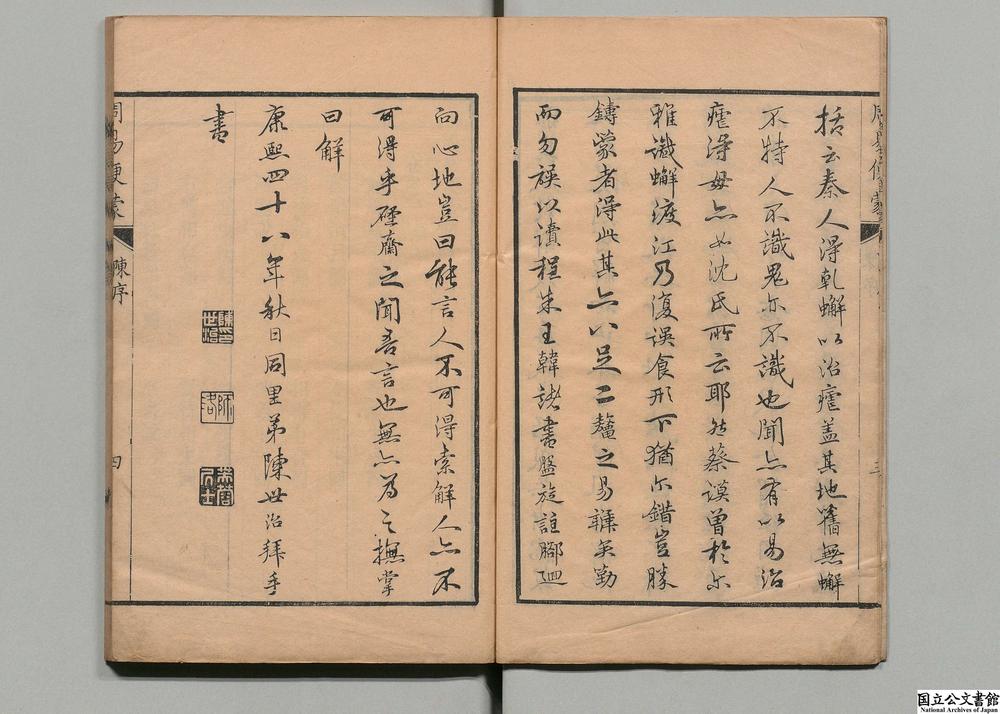 括云秦人得乾蠏以治瘧盖其地舊無蠏
不特人不識鬼亦不識也聞亦有以易治
瘧得毋亦如沈氏所云耶然蔡謨曾於尓
雅識蠏渡江乃復誤食形下猶尓錯豈勝
鑄蒙者得此其亦八足二螯之易乎矣勤
而勿誤以讀程朱王韓諸書盤旋註腳迴
向心地豈曰能言人不可得索解人亦不
可得乎硜齋之聞吾言也無亦為之撫掌
曰解
康熙四十八年秋日同里弟陳世治拜手
書
陳印世治
師洛
周易便蒙
陳序
四
周易便蒙
三
国立公文書館
National Archives of Japan